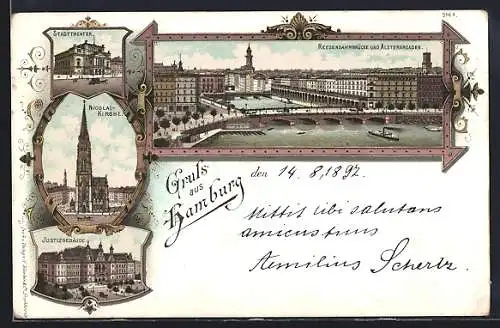 STADTTHEATER.
REESENDAMMBRÜCKE UND ALSTERARCADEN.
NICOLAI-
KIRCHE.
JUSTIZGEBÄUDE.
Gruss
aus
Hamburg
den 14. 8. 1897
Mittit tibi salutans
amicus tuus
Aemilius Schertz.